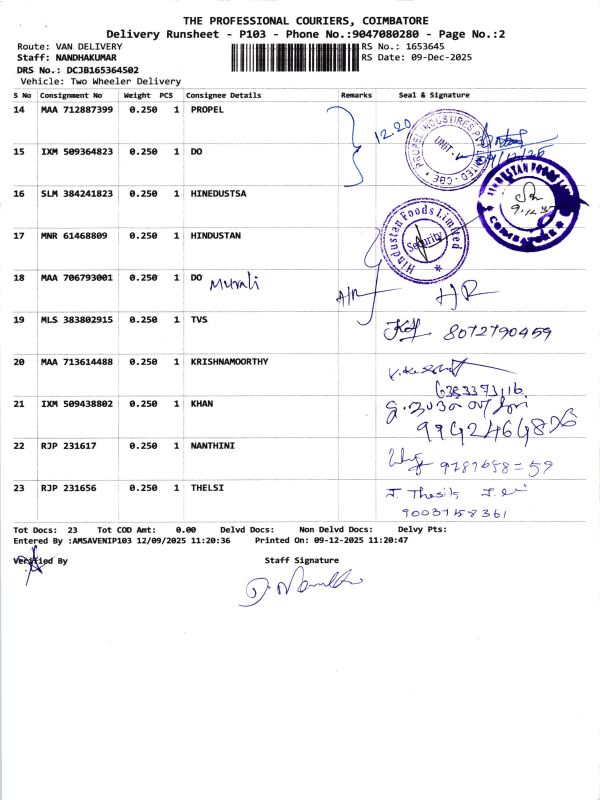 THE PROFESSIONAL COURIERS, COIMBATORE
Delivery Runsheet - P103 - Phone No.:9047080280 - Page No.:2
Route: VAN DELIVERY
RS No.: 1653645
Staff: NANDHAKUMAR
RS Date: 09-Dec-2025
DRS No.: DCJB165364502
Vehicle: Two Wheeler Delivery
S No Consignment No Weight PCS Consignee Details Remarks Seal & Signature
14 MAA 712887399 0.250 1 PROPEL
12.20
PROPEL INDUSTIRES
UNIT -
CBE
15 IXM 509364823 0.250 1 DO
16 SLM 384241823 0.250 1 HINEDUSTSA
HINDUSTAN FOODS
COIMBATORE
17 MNR 61468809 0.250 1 HINDUSTAN
Hindustan Foods Limited
Security
18 MAA 706793001 0.250 1 DO Murali
19 MLS 383802915 0.250 1 TVS 8072790459
20 MAA 713614488 0.250 1 KRISHNAMOORTHY
21 IXM 509438802 0.250 1 KHAN
22 RJP 231617 0.250 1 NANTHINI
23 RJP 231656 0.250 1 THELSI
Tot Docs: 23 Tot COD Amt: 0.00 Delvd Docs: Non Delvd Docs: Delvy Pts:
Entered By :AMSAVENIP103 12/09/2025 11:20:36 Printed On: 09-12-2025 11:20:47
Verified By Staff Signature